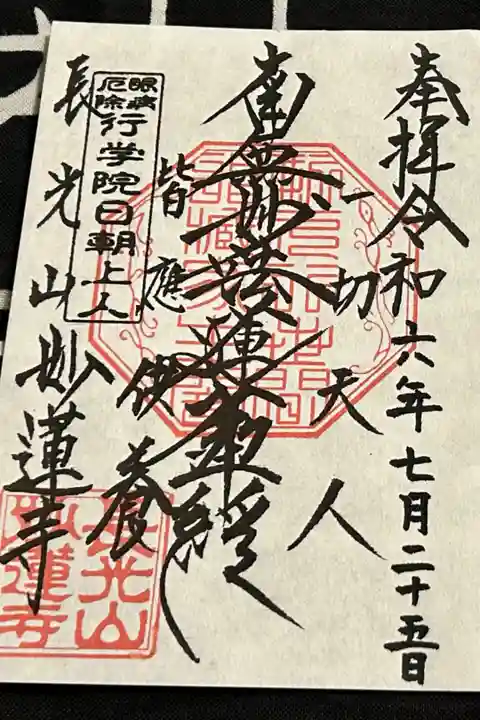 奉拝 令和六年七月二十五日
一切天人
南無妙法蓮華経
皆應供養
眼病
厄除
行学院日朝上人
長光山妙蓮寺
長光山
妙蓮寺